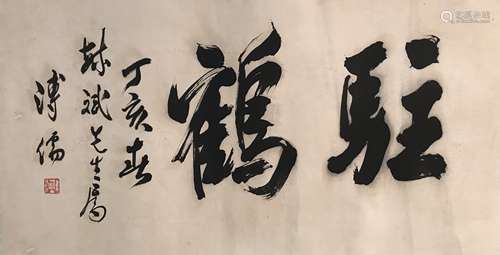 駐鶴
丁亥春
斌先生屬
溥儒